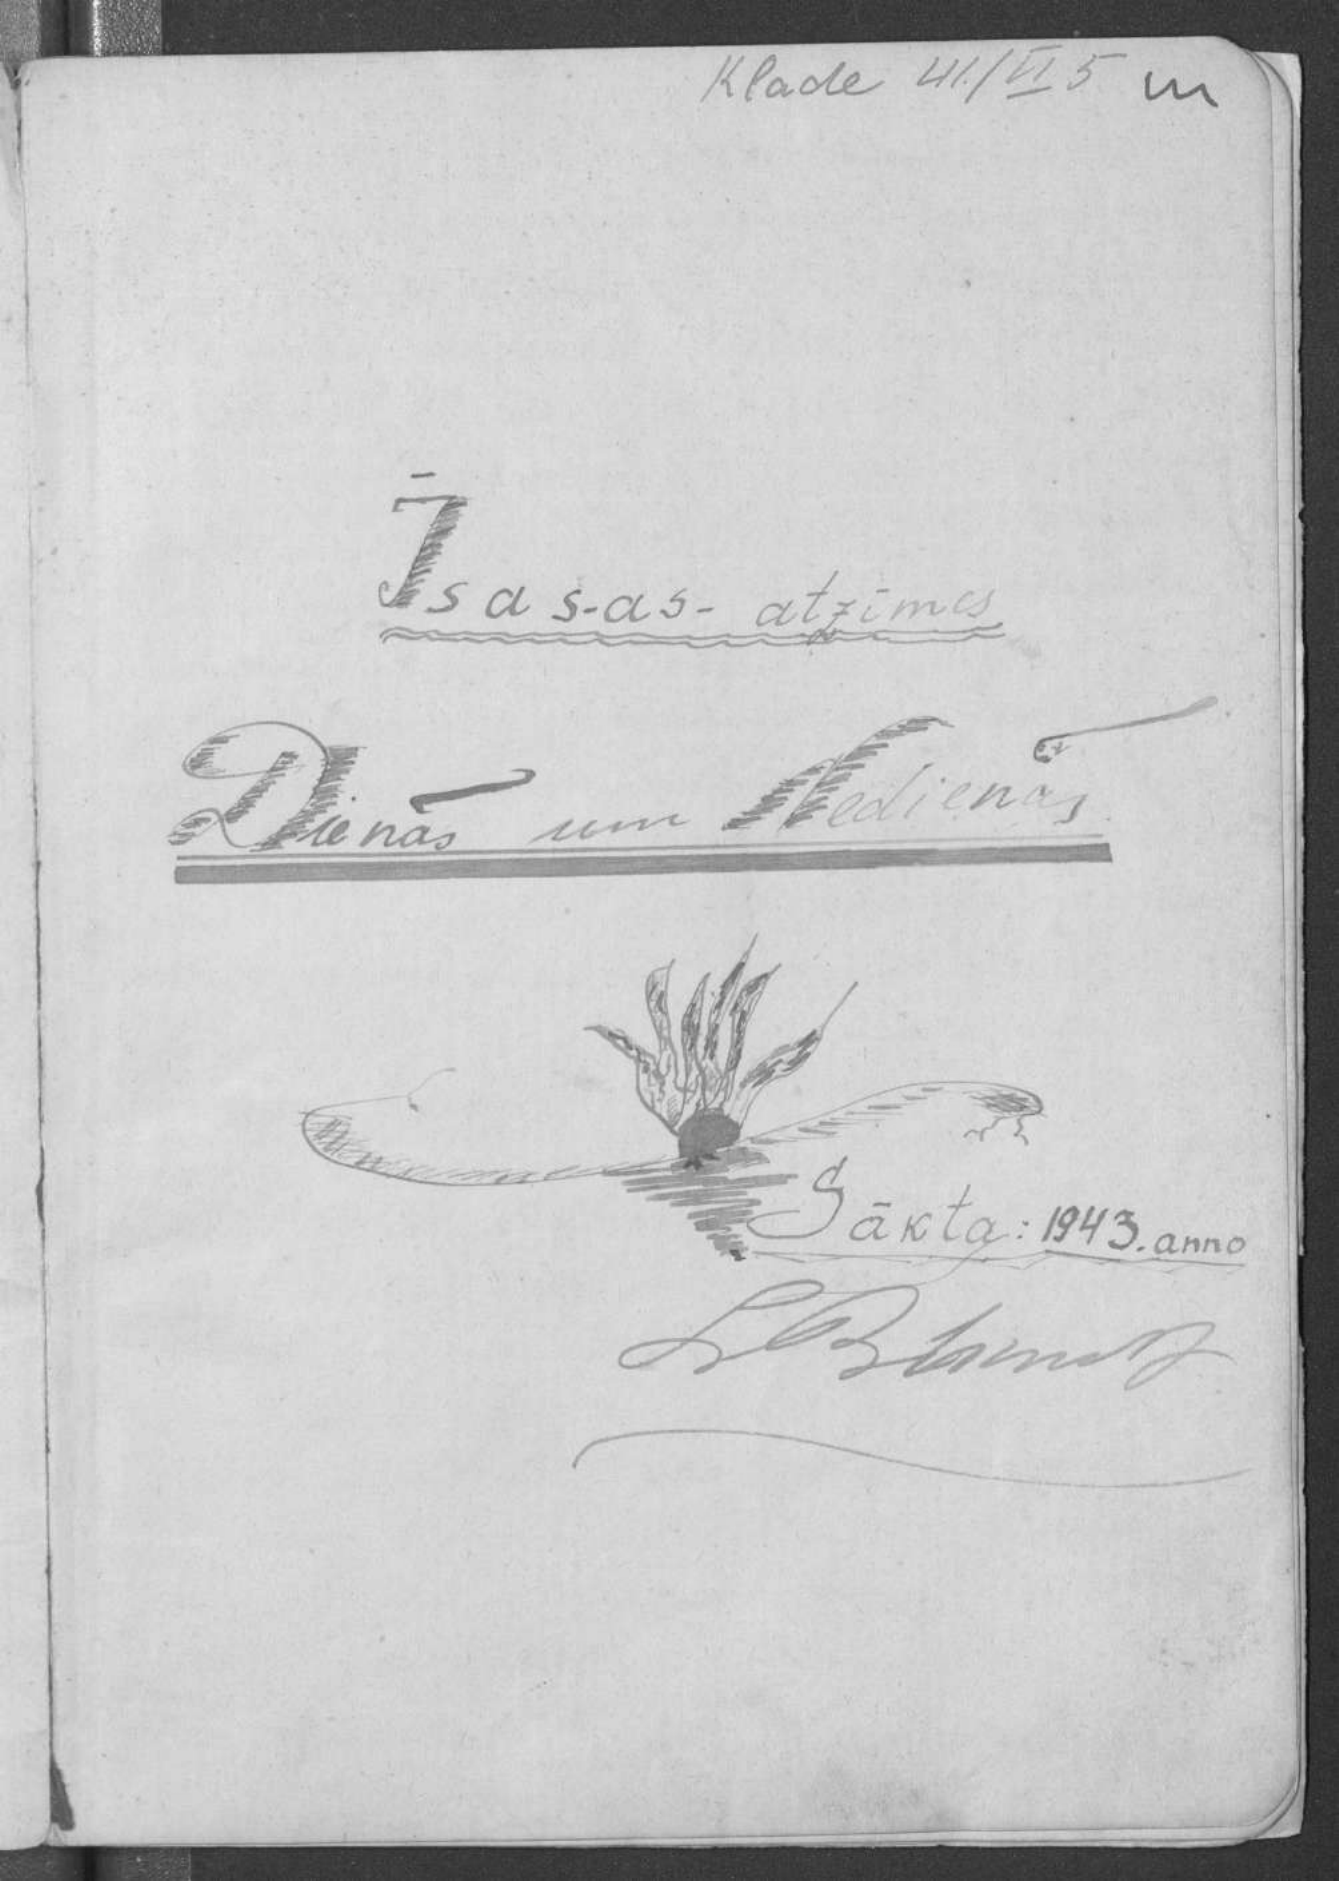 Klade 41/VI 5
Īsas-as- atzīmes
Dienās un Nedienās
Sākta: 1943. anno